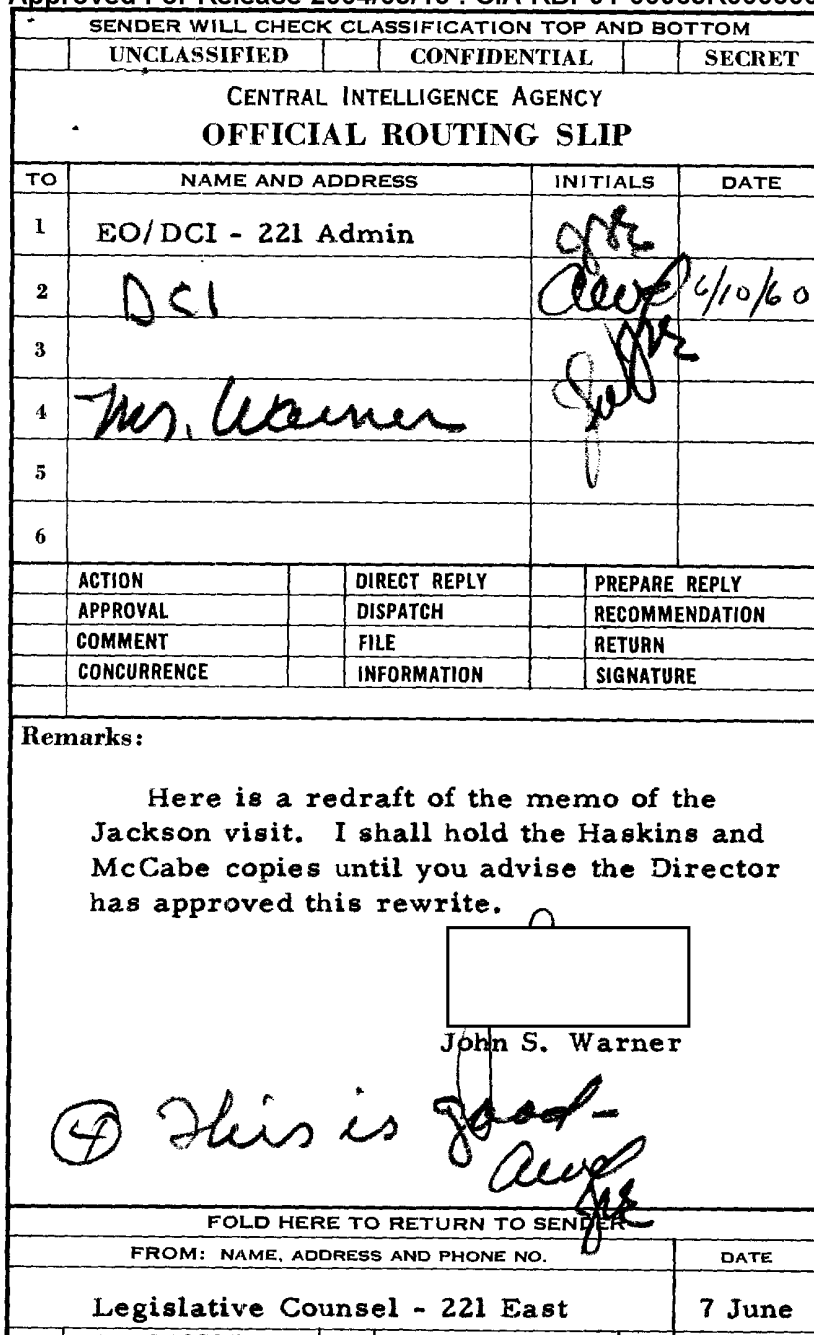 SENDER WILL CHECK CLASSIFICATION TOP AND BOTTOM
UNCLASSIFIED CONFIDENTIAL SECRET
CENTRAL INTELLIGENCE AGENCY
OFFICIAL ROUTING SLIP
TO NAME AND ADDRESS INITIALS DATE
1 EO/DCI - 221 Admin
2 DCI 6/10/60
3
4 Mr. Warner
5
6
ACTION DIRECT REPLY PREPARE REPLY
APPROVAL DISPATCH RECOMMENDATION
COMMENT FILE RETURN
CONCURRENCE INFORMATION SIGNATURE
Remarks:
Here is a redraft of the memo of the
Jackson visit. I shall hold the Haskins and
McCabe copies until you advise the Director
has approved this rewrite.
John S. Warner
4 This is good-
FOLD HERE TO RETURN TO SENDER
FROM: NAME, ADDRESS AND PHONE NO. DATE
Legislative Counsel - 221 East 7 June